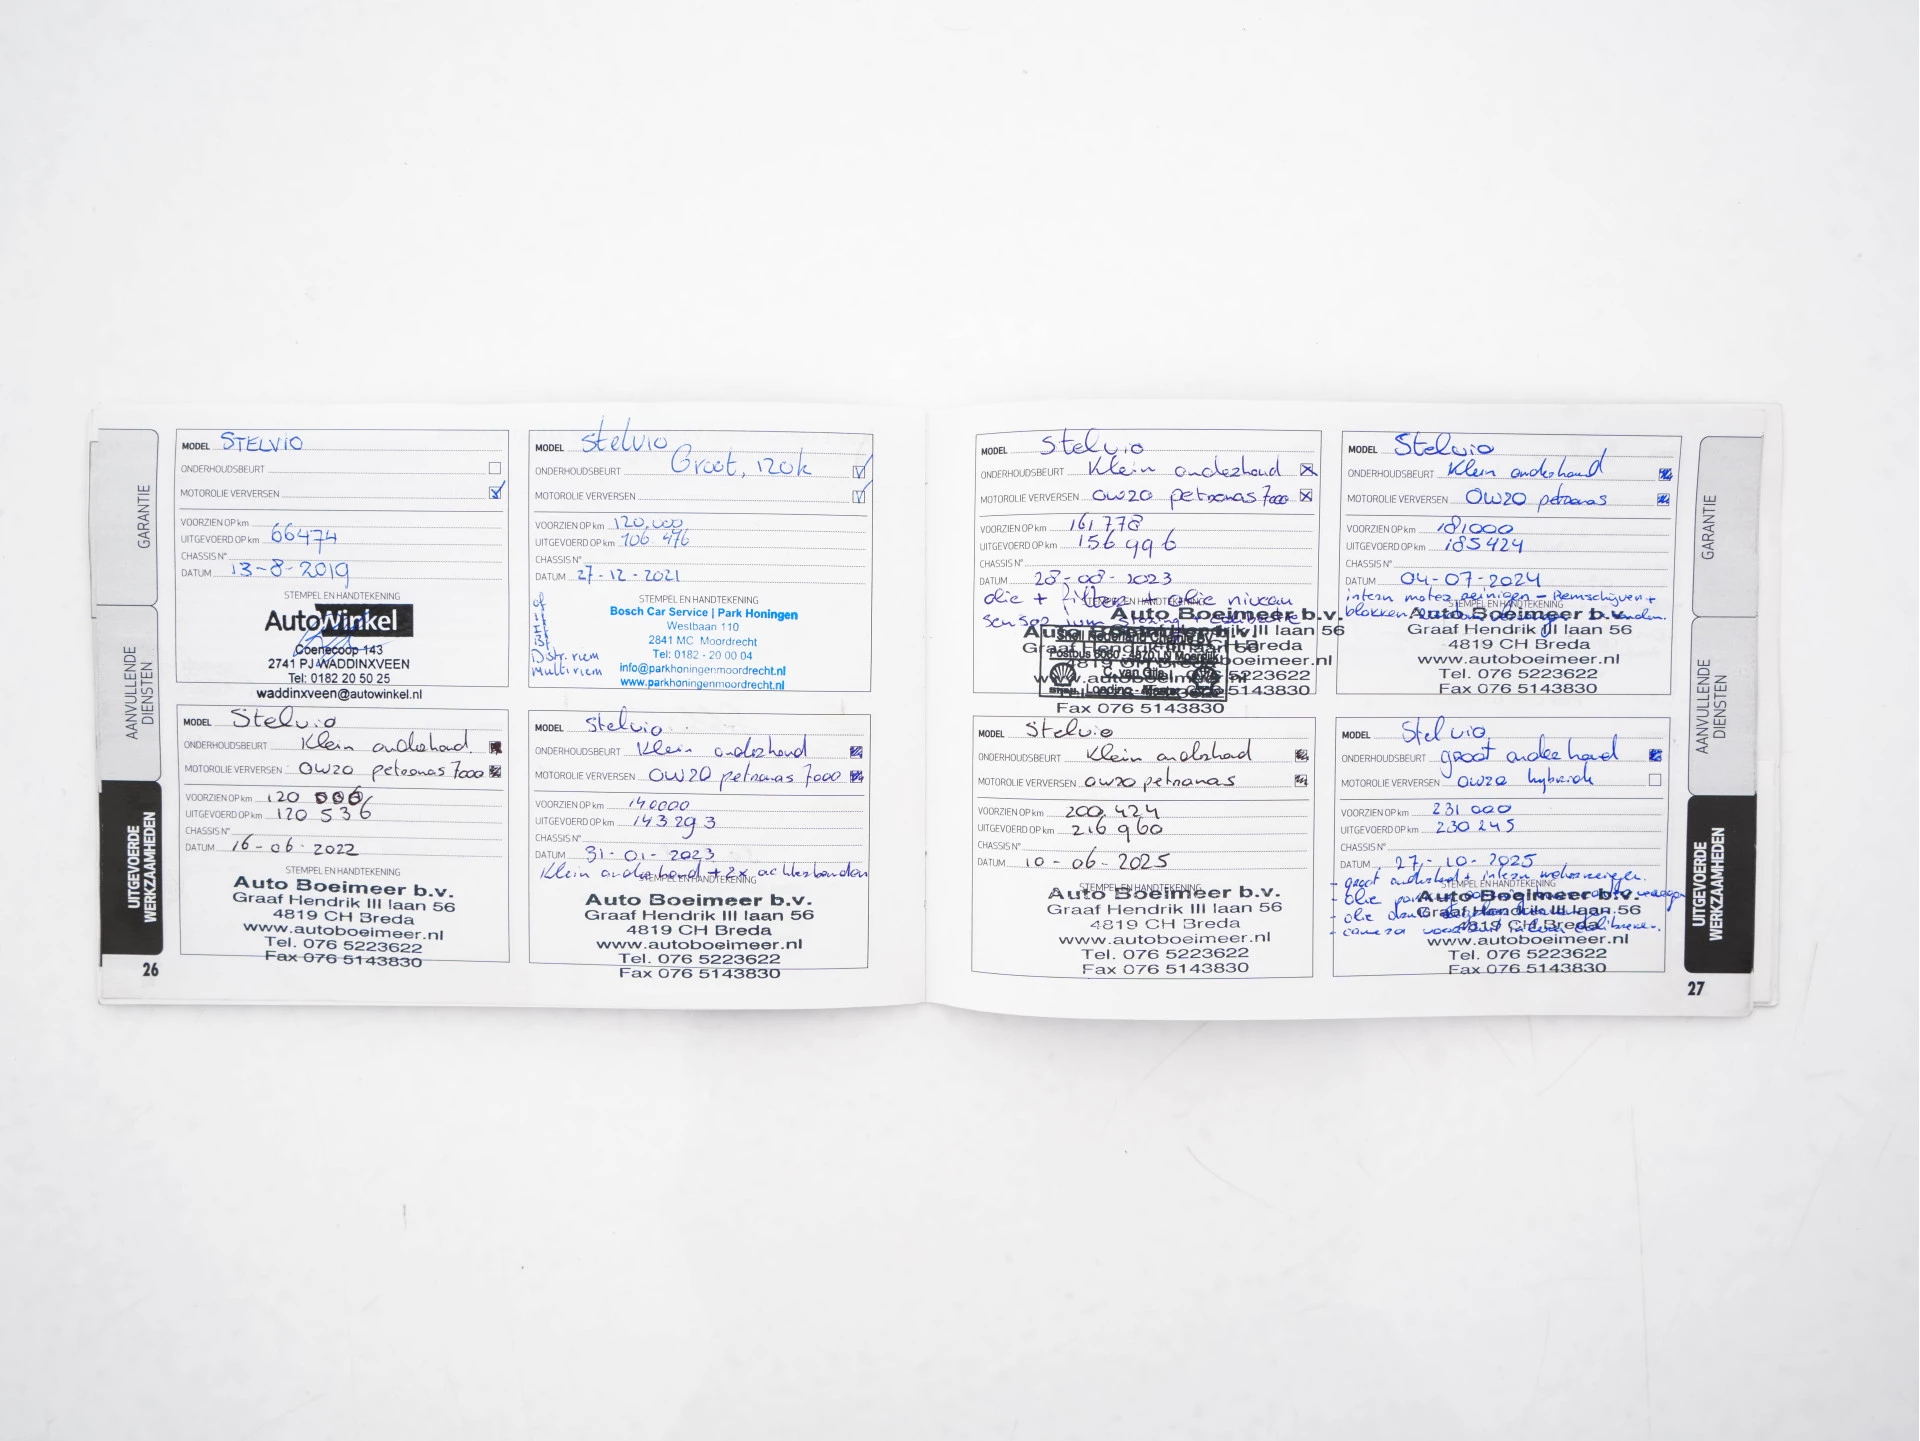 GARANTIE
AANVULLENDE
DIENSTEN
UITGEVOERDE
WERKZAAMHEDEN
26
MODEL STELVIO
ONDERHOUDSBEURT
MOTOROLIE VERVERSEN
VOORZIEN OP km
UITGEVOERD OP km 66474
CHASSIS N°
DATUM 13-8-2019
STEMPEL EN HANDTEKENING
AutoWinkel
Coenecoop 143
2741 PJ WADDINXVEEN
Tel: 0182 20 50 25
waddinxveen@autowinkel.nl
MODEL Stelvio
ONDERHOUDSBEURT Groot, 120k
MOTOROLIE VERVERSEN
VOORZIEN OP km 120.000
UITGEVOERD OP km 106 476
CHASSIS N°
DATUM 27-12-2021
STEMPEL EN HANDTEKENING
Bosch Car Service | Park Honingen
Westbaan 110
2841 MC Moordrecht
Tel: 0182 - 20 00 04
info@parkhoningenmoordrecht.nl
www.parkhoningenmoordrecht.nl
Distr. riem
Multiriem
MODEL Stelvio
ONDERHOUDSBEURT Klein onderhoud
MOTOROLIE VERVERSEN 0W20 petronas 7000
VOORZIEN OP km 120 000
UITGEVOERD OP km 120 536
CHASSIS N°
DATUM 16-06-2022
STEMPEL EN HANDTEKENING
Auto Boeimeer b.v.
Graaf Hendrik III laan 56
4819 CH Breda
www.autoboeimeer.nl
Tel. 076 5223622
Fax 076 5143830
MODEL Stelvio
ONDERHOUDSBEURT Klein onderhoud
MOTOROLIE VERVERSEN 0W20 petronas 7000
VOORZIEN OP km 140000
UITGEVOERD OP km 143293
CHASSIS N°
DATUM 31-01-2023
Klein onderhoud + 2x achterbanden
STEMPEL EN HANDTEKENING
Auto Boeimeer b.v.
Graaf Hendrik III laan 56
4819 CH Breda
www.autoboeimeer.nl
Tel. 076 5223622
Fax 076 5143830
MODEL Stelvio
ONDERHOUDSBEURT Klein onderhoud
MOTOROLIE VERVERSEN 0W20 petronas 7000
VOORZIEN OP km 161 778
UITGEVOERD OP km 156 996
CHASSIS N°
DATUM 28-08-2023
olie + filter + olie niveau
STEMPEL EN HANDTEKENING
sensor ivm storing
Auto Boeimeer b.v.
Shell Nederland Chemie BV
Postbus 6060 - 4870 LN Moerdijk
C. van Gils
Graaf Hendrik III laan 56
4819 CH Breda
www.autoboeimeer.nl
Tel. 076 5223622
Fax 076 5143830
MODEL Stelvio
ONDERHOUDSBEURT Klein onderhoud
MOTOROLIE VERVERSEN 0W20 petronas
VOORZIEN OP km 181000
UITGEVOERD OP km 185424
CHASSIS N°
DATUM 04-07-2024
intern motor reinigen - Remschijven +
STEMPEL EN HANDTEKENING
blokken
Auto Boeimeer b.v.
Graaf Hendrik III laan 56
4819 CH Breda
www.autoboeimeer.nl
Tel. 076 5223622
Fax 076 5143830
MODEL Stelvio
ONDERHOUDSBEURT Klein onderhoud
MOTOROLIE VERVERSEN 0W20 petronas
VOORZIEN OP km 200.424
UITGEVOERD OP km 216 960
CHASSIS N°
DATUM 10-06-2025
STEMPEL EN HANDTEKENING
Auto Boeimeer b.v.
Graaf Hendrik III laan 56
4819 CH Breda
www.autoboeimeer.nl
Tel. 076 5223622
Fax 076 5143830
MODEL Stelvio
ONDERHOUDSBEURT groot onderhoud
MOTOROLIE VERVERSEN 0W20 hybride
VOORZIEN OP km 231 000
UITGEVOERD OP km 230 245
CHASSIS N°
DATUM 27-10-2025
- groot onderhoud + intern motorreinigen.
STEMPEL EN HANDTEKENING
- olie
- olie
- camera
Auto Boeimeer b.v.
Graaf Hendrik III laan 56
4819 CH Breda
www.autoboeimeer.nl
Tel. 076 5223622
Fax 076 5143830
GARANTIE
AANVULLENDE
DIENSTEN
UITGEVOERDE
WERKZAAMHEDEN
27